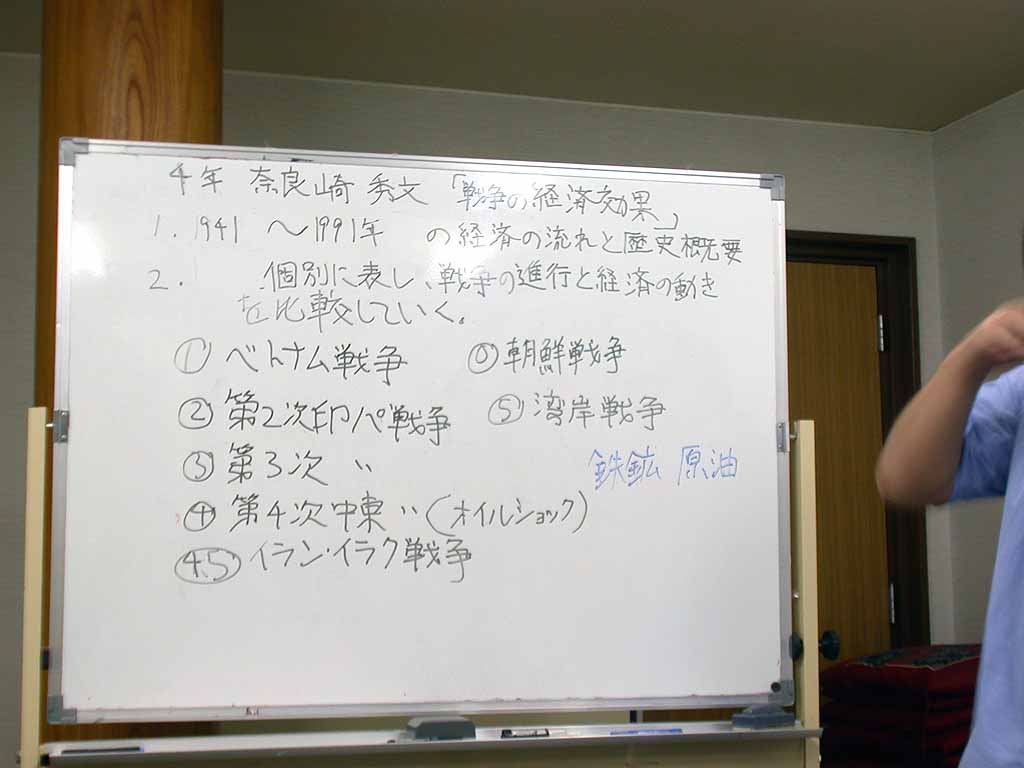 4年 奈良崎 秀文 「戦争の経済効果」
1. 1941 〜1991年 の経済の流れと歴史概要
2. 個別に表し、戦争の進行と経済の動き
を比較していく。
① ベトナム戦争 ⓪ 朝鮮戦争
② 第2次印パ戦争 ⑤ 湾岸戦争
③ 第3次 〃
鉄鉱 原油
④ 第4次中東 〃 (オイルショック)
4.5 イラン・イラク戦争